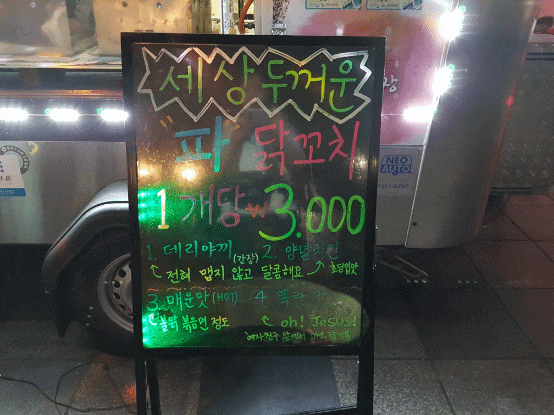 세상 두꺼운
"파" 닭꼬치
1개당 ₩3.000
1. 데리야끼 (간장) 2. 양념치킨
전혀 맵지 않고 달콤해요
3. 매운맛 (HOT) 4. 폭탄
불닭 볶음면 정도
oh! Jesus!
NEO
AUTO